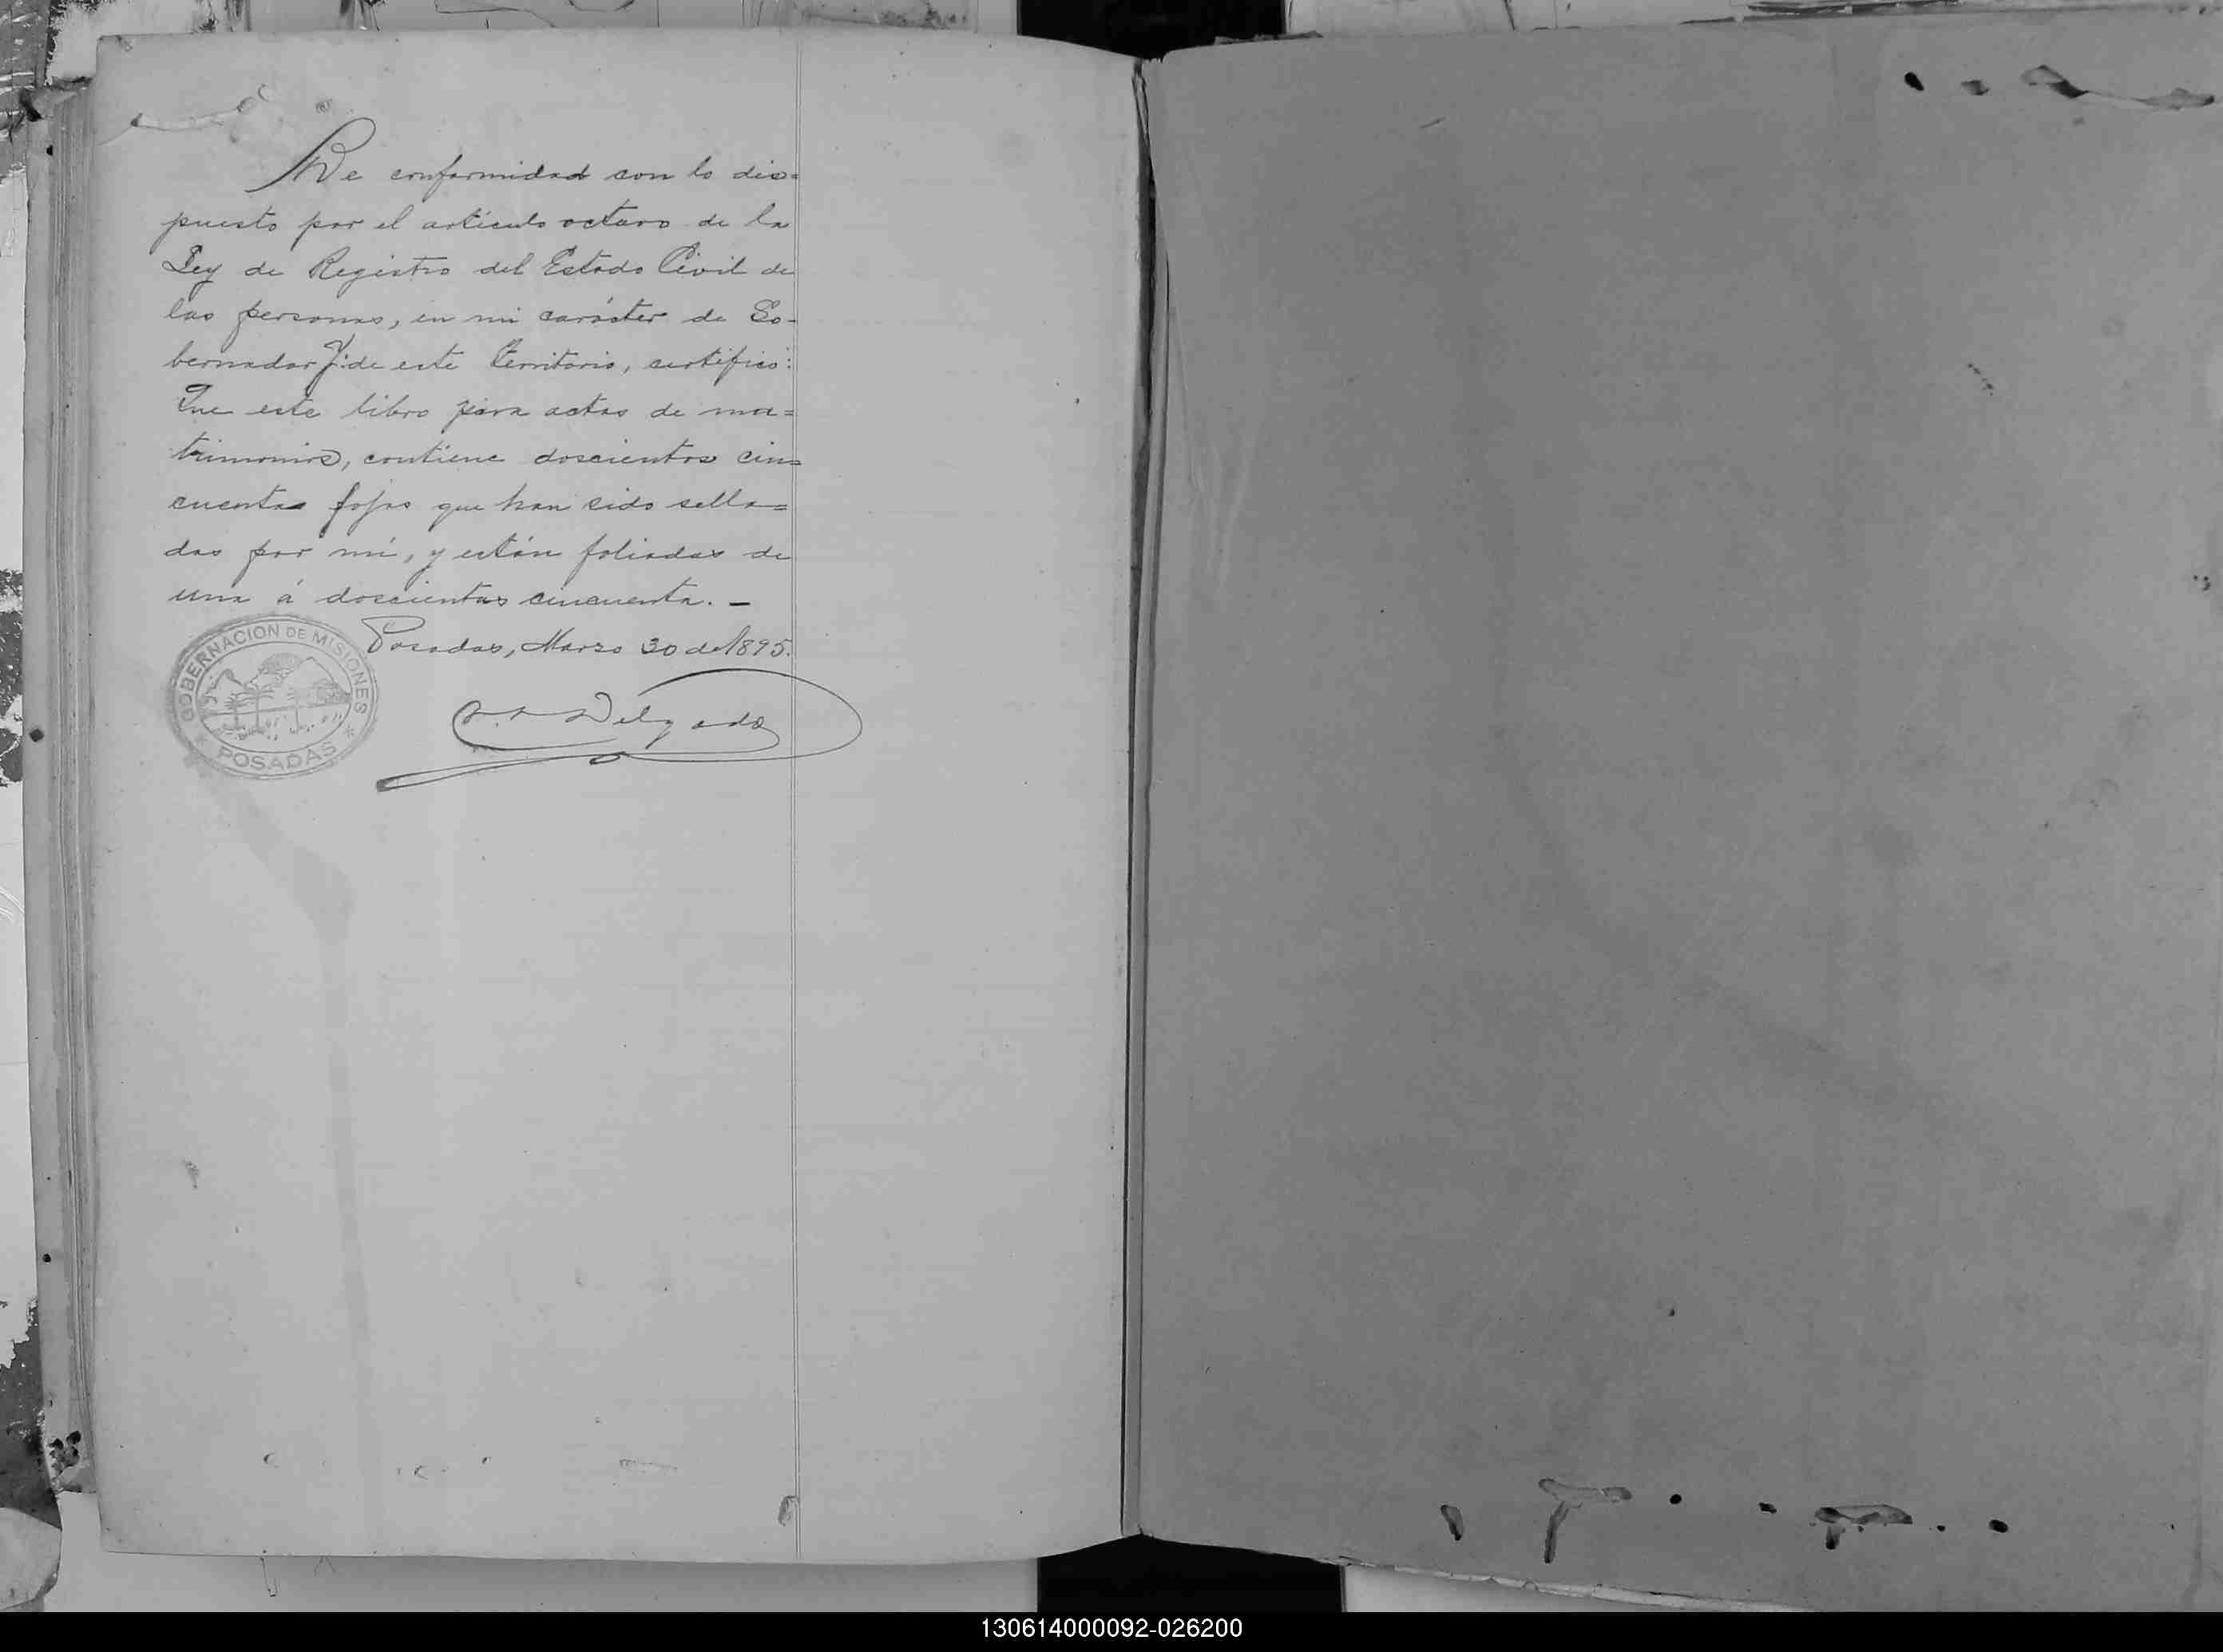 De conformidad con lo dis=
puesto por el artículo octavo de la
Ley de Registro del Estado Civil de
las personas, en mi carácter de Go-
bernador Y. de este Territorio, certifico:
Que este libro para actas de ma=
trimonios, contiene doscientas cin=
cuenta fojas que han sido sella=
das por mí, y están foliadas de
una á doscientas cincuenta. —
Posadas, Marzo 30 de 1895.
GOBERNACION DE MISIONES
* POSADAS *
Delgado
130614000092-026200